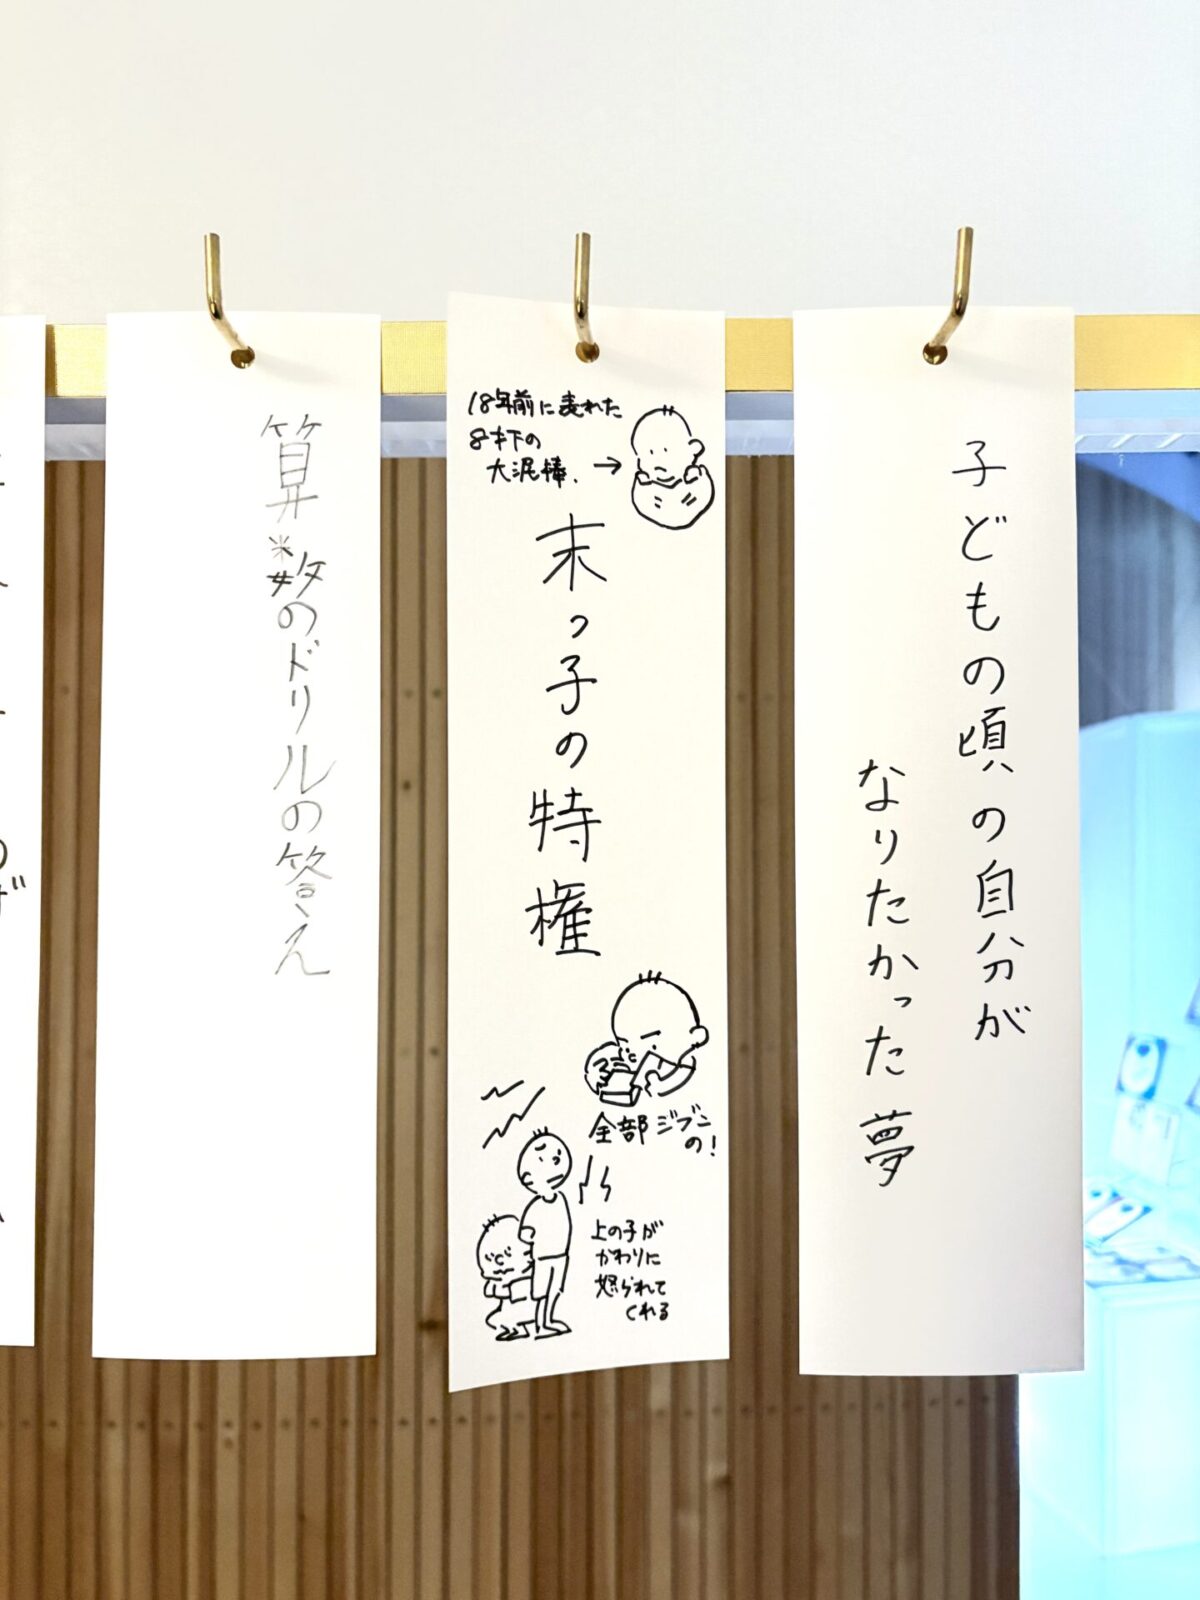 子どもの頃の自分が
なりたかった夢
18年前に表れた
8才下の
大泥棒、→
末っ子の特権
全部ジブン
の!
上の子が
かわりに
怒られて
くれる
算数のドリルの答え